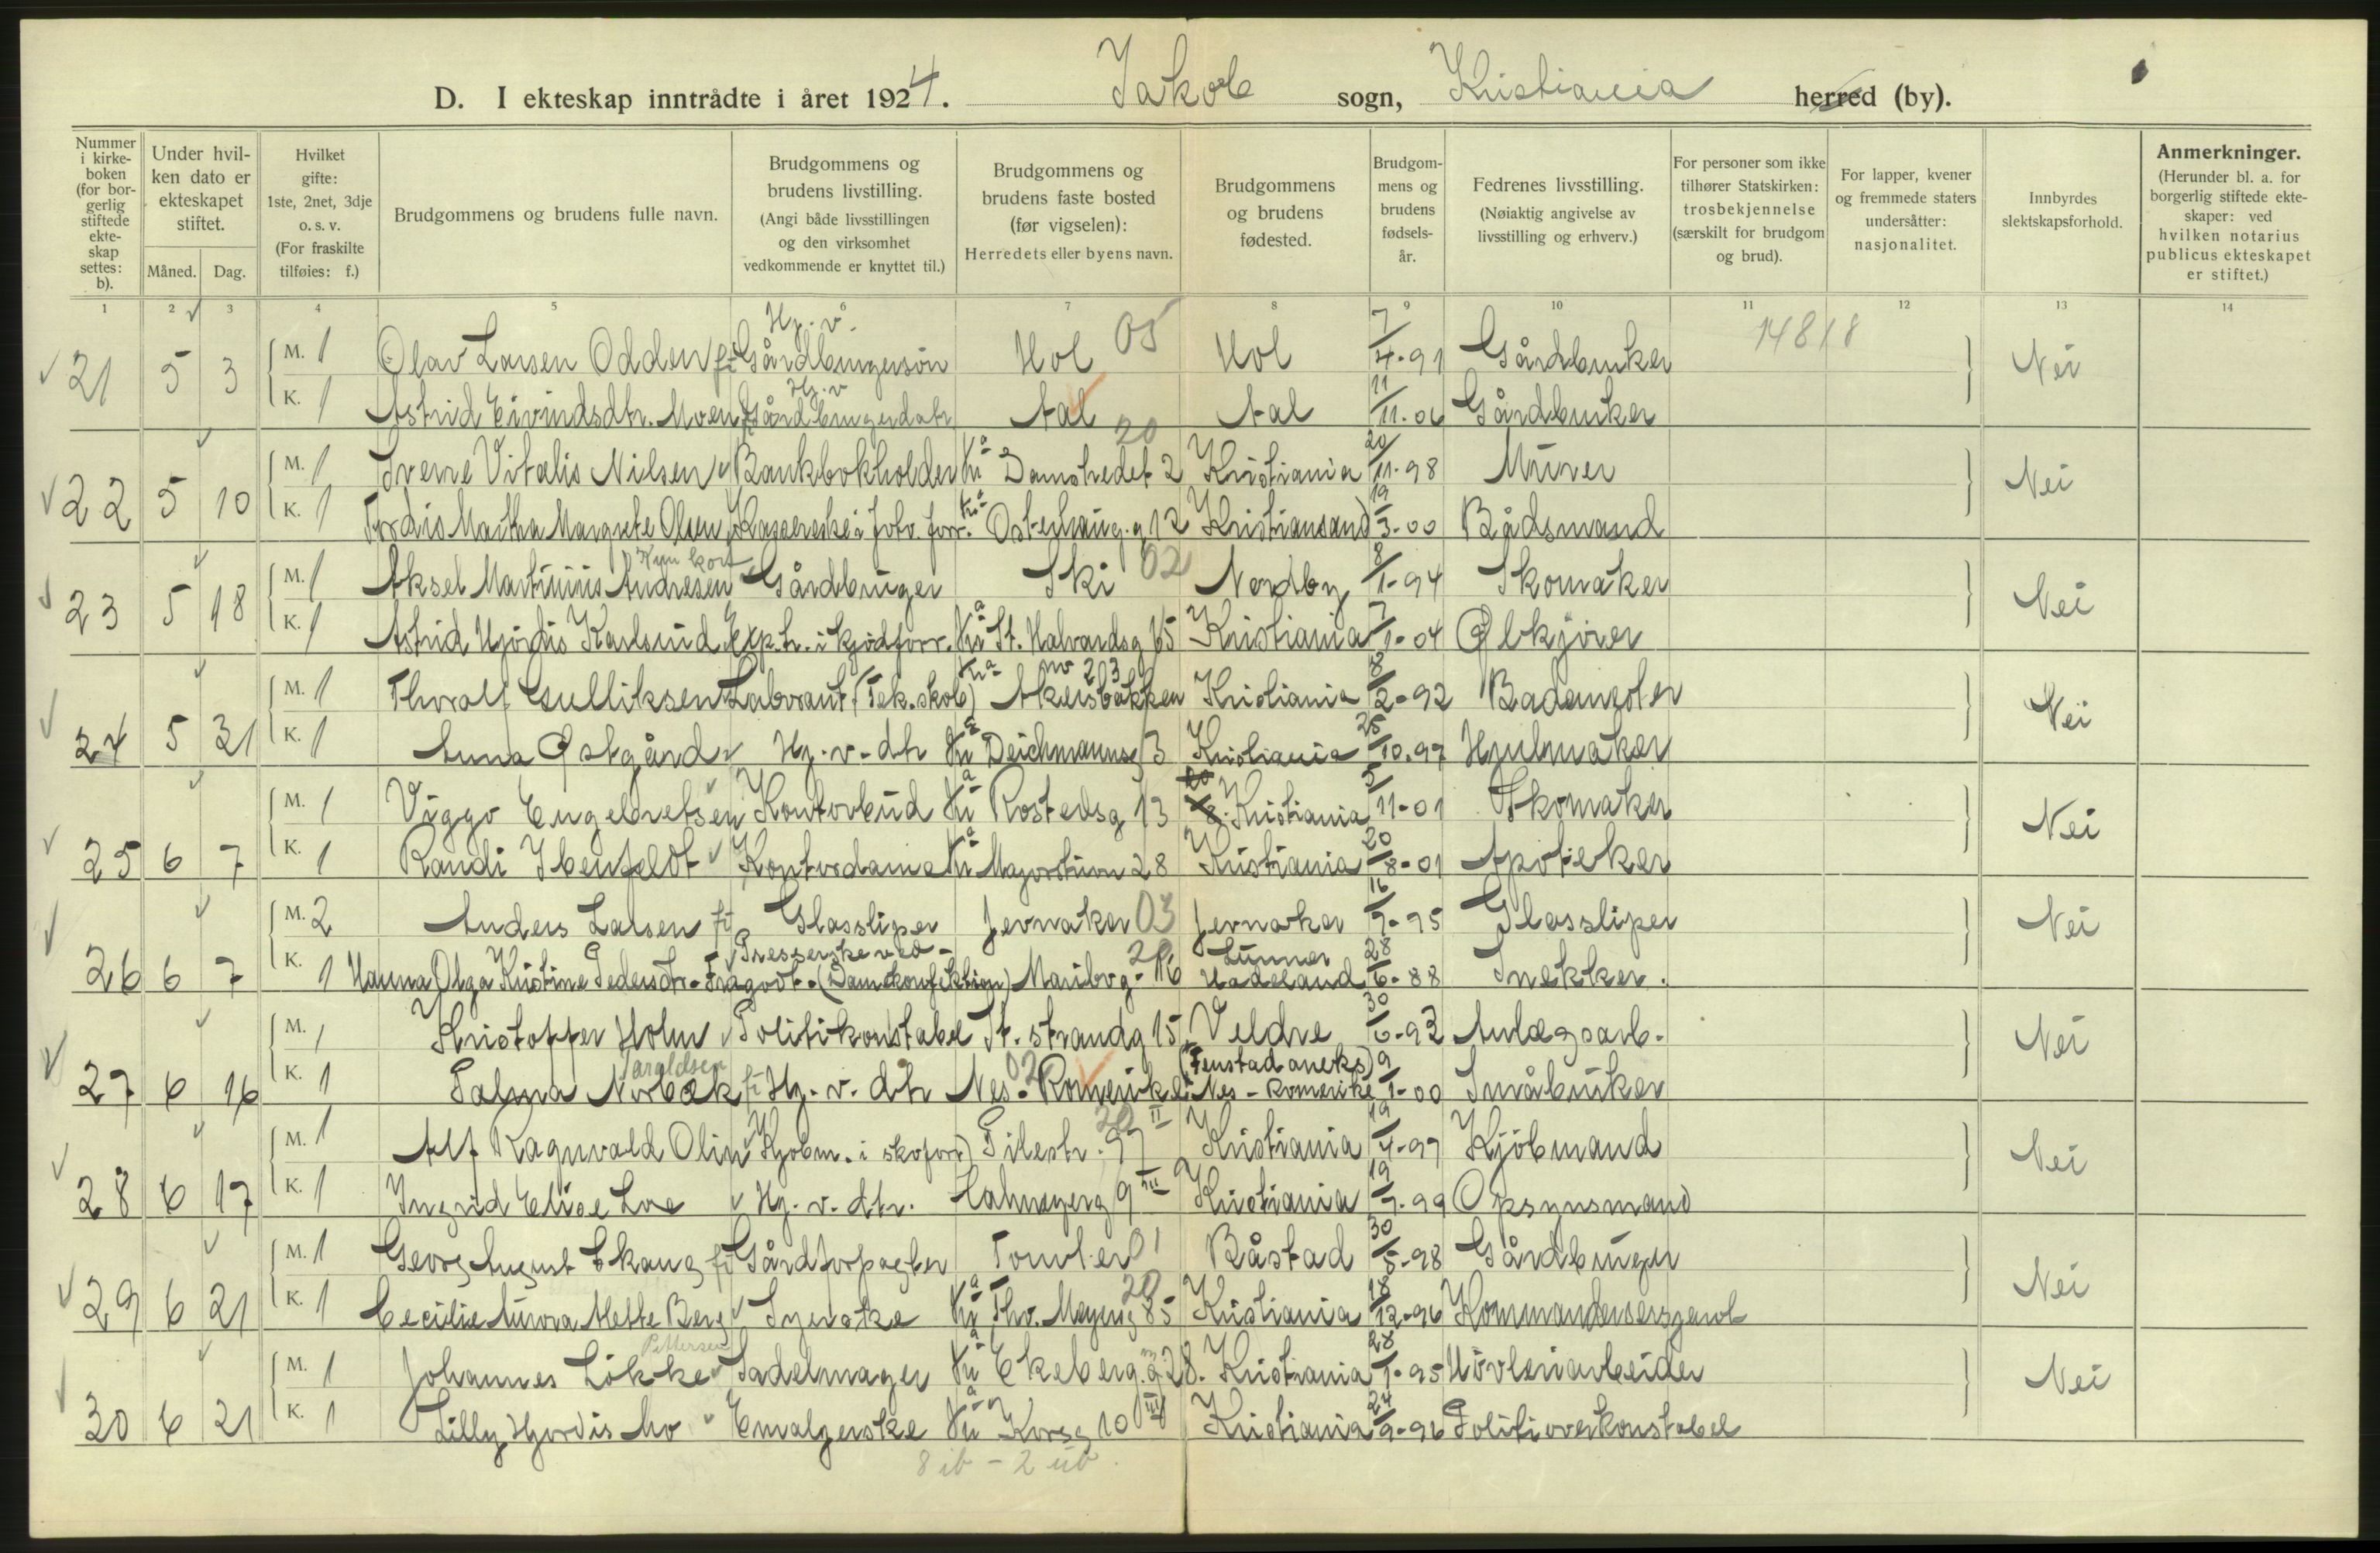 D. I ekteskap inntrådte i året 1924. Jakob sogn, Kristiania herred (by).
Nummer i kirkeboken (for borgerlig stiftede ekteskap settes: b).
Under hvilken dato er ekteskapet stiftet.
Måned. Dag.
Hvilket gifte: 1ste, 2net, 3dje o. s. v. (For fraskilte tilføies: f.)
Brudgommens og brudens fulle navn.
Brudgommens og brudens livstilling. (Angi både livsstillingen og den virksomhet vedkommende er knyttet til.)
Brudgommens og brudens faste bosted (før vigselen): Herredets eller byens navn.
Brudgommens og brudens fødested.
Brudgommens og brudens fødselsår.
Fedrenes livsstilling. (Nøiaktig angivelse av livsstilling og erhverv.)
For personer som ikke tilhører Statskirken: trosbekjennelse (særskilt for brudgom og brud).
For lapper, kvener og fremmede staters undersåtter: nasjonalitet.
Innbyrdes slektskapsforhold.
Anmerkninger. (Herunder bl. a. for borgerlig stiftede ekteskaper: ved hvilken notarius publicus ekteskapet er stiftet.)
1 2 3 4 5 6 7 8 9 10 11 12 13 14
21 5 3 M. 1 Olav Larsen Odden Hj. v. Gårdbrugersøn Hol 05 Hol 7/4-91 Gårdbruker 14818 Nei
K. 1 Astrid Eivindsdtr. Moen Hj. v Gårdbrugerdatr Aal Aal 11/11-06 Gårdbruker
22 5 10 M. 1 Sverre Vitalis Nilsen Bankbokholder Kra Damstredet 2 20 Kristiania 20/11-98 Murer Nei
K. 1 Tordis Martha Margrete Olsen Kassererske i Jotv. forr. Kra Osterhausg. 12 Kristiansand 19/3-00 Bådsmand
23 5 18 M. 1 Aksel Martinius Andresen Kun kort Gårdbruger Ski 02 Nordby 8/1-94 Skomaker Nei
K. 1 Astrid Hjørdis Karlsrud Exp.tr. i kjødforr. Kra St. Halvardsg 65 Kristiania 7/1-04 Ølkjører
24 5 31 M. 1 Thoralf Gulliksen Laborant (Tek. skole) Kra Akersbakken Kristiania 8/2-92 Bademester Nei
K. 1 Anna Østgård Hj. v. dtr Kra Deichmannsg 3 Kristiania 25/10.97 Hjulmaker
25 6 7 M. 1 Viggo Engebretsen Kontorbud Kra Rostedsg 13 Kristiania 5/11-01 Skomaker Nei
K. 1 Randi Ibenfeldt Kontordame Kra Majorstuvn 28 Kristiania 20/8-01 Apoteker
26 6 7 M. 2 Anders Larsen Glassliper Jevnaker 03 Jevnaker 16/9-95 Glassliper Nei
K. 1 Hanna Olga Kristine Pedersdtr. Fragodt Presserske ved (Damekonfektion) Maribog. 16 20 Lunner Hadeland 28/6-88 Snekker.
27 6 16 M. 1 Kristoffer Holm Politikonstabel St. strandg 15 Veldre 30/6-93 Anlægsarb. Nei
K. 1 Palma Norbæk Taraldsen Hj. v. dtr Nes-Romerike 02 (Fenstad aneks) Nes - Romerike 9/1-00 Småbruker
28 6 17 M. 1 Alf Ragnvald Olin Kjøbm. i skoforr. Pilestr. 97 II 20 Kristiania 19/4-97 Kjøbmand Nei
K. 1 Ingrid Elise Loe Hj. v. dtr. Calmeyerg 9 III Kristiania 19/9-99 Opsynsmand
29 6 21 M. 1 Georg August Skaug Gårdforpagter Tomter 01 Båstad 30/5-98 Gårdbruger Nei
K. 1 Cecilie Aurora Mette Berg Syerske Kra Thv. Meyersg 85 20 Kristiania 18/12-96 Kommandersersjant
30 6 21 M. 1 Johannes Løkke Pettersen Sadelmager Kra Ekeberg. g 28. Kristiania 28/1-95 Høvleriarbeider Nei
K. 1 Lilly Hjordis Mo Emaljerske Kra Korsg 10 III Kristiania 24/9-96 Politioverkonstabel
8 ib - 2 ub.